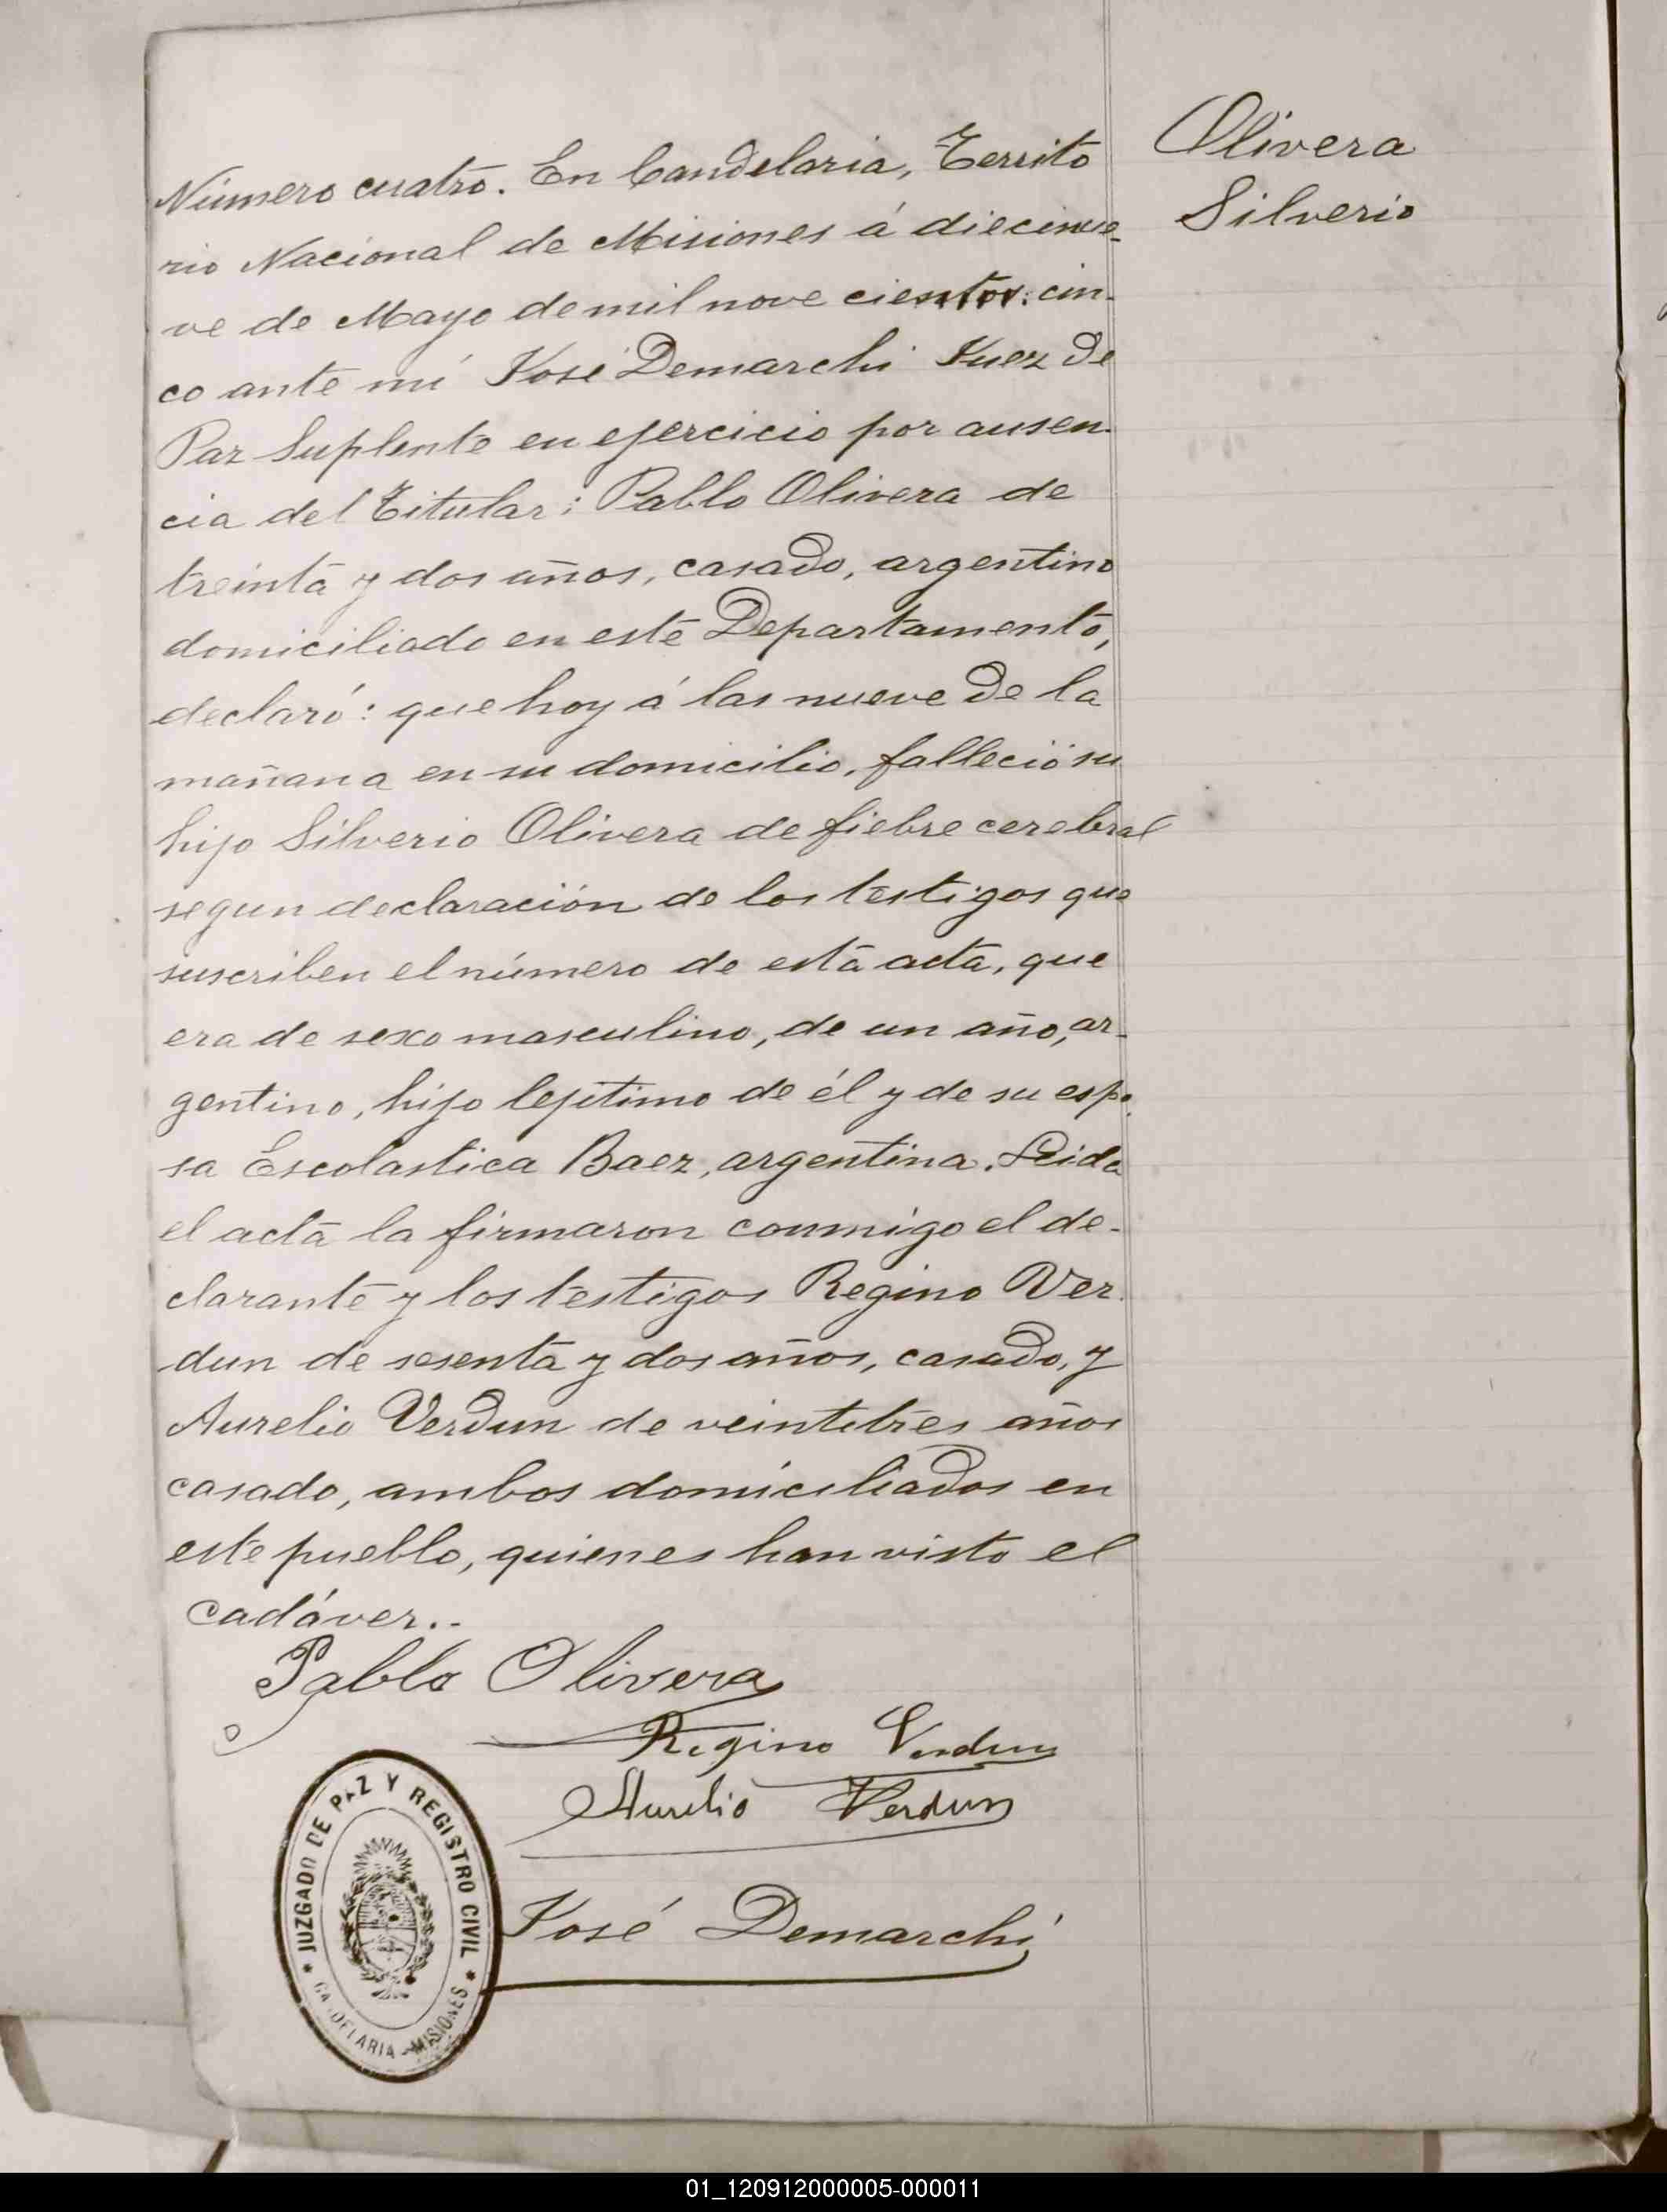 Olivera
Silverio
Número cuatro. En Candelaria, Territo
rio Nacional de Misiones á diecinue-
ve de Mayo de mil nove cientos cin-
co ante mí José Demarchi Juez de
Paz Suplente en ejercicio por ausen-
cia del Titular: Pablo Olivera de
treinta y dos años, casado, argentino
domiciliado en este Departamento,
declaró: que hoy á las nueve de la
mañana en su domicilio, falleció su
hijo Silverio Olivera de fiebre cerebral
segun declaración de los testigos que
suscriben el número de esta acta, que
era de sexo masculino, de un año, ar-
gentino, hijo lejitimo de él y de su espo-
sa Escolastica Baez, argentina. Leida
el acta la firmaron conmigo el de-
clarante y los testigos Regino Ver-
dun de sesenta y dos años, casado, y
Aurelio Verdun de veintitres años
casado, ambos domiciliados en
este pueblo, quienes han visto el
cadáver..
Pablo Olivera
Regino Verdun
Aurelio Verdun
José Demarchi
JUZGADO DE PAZ Y REGISTRO CIVIL
CANDELARIA - MISIONES
01_120912000005-000011